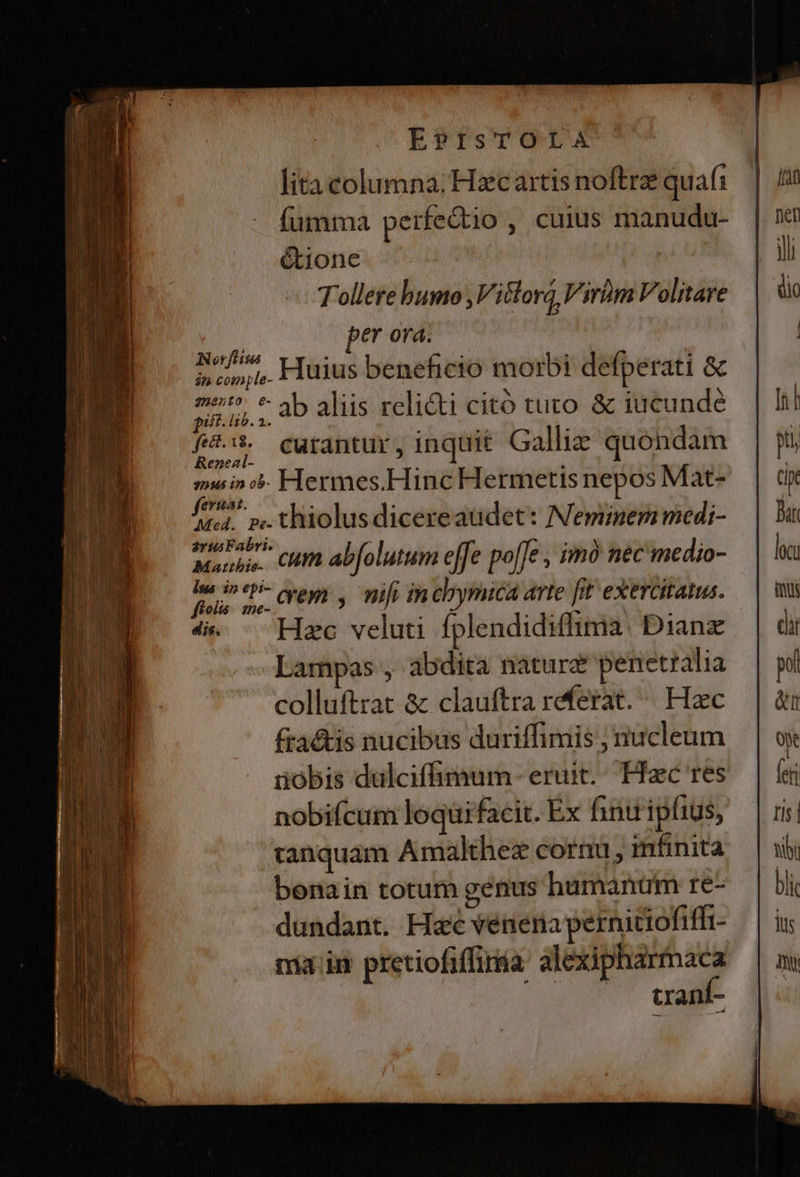 EPISTOLA
lita columna. Hæc artis noſtræ quaſi
ſumma perfectio, cuius manudu-
ctione
Tollere humo, Victorq́, Virûm Volitare
per ora.
Huius beneficio morbi deſperati &
ab aliis relicti citò tuto & iucundè
curantur, inquit Galliæ quondam
Hermes. Hinc Hermetis nepos Mat-
thiolus dicere audet: Neminem medi-
cum abſolutum eſſe poſſe, imò nec medio-
crem, niſi in chymica arte ſit exercitatus.
Hæc veluti ſplendidiſſima Dianæ
Lampas, abdita naturæ penetralia
colluſtrat & clauſtra referat. Hæc
fractis nucibus duriſſimis, nucleum
nobis dulciſſimum eruit. Hæc res
nobiſcum loqui facit. Ex ſinu ipſius,
tanquam Amaltheæ cornu, infinita
bona in totum genus humanum re-
dundant. Hæc venena pernitioſiſſi-
ma in pretioſiſſima alexipharmaca
tranſ-
Norſtius
in comple-
mento e-
piſt. lib. 2.
ſect. 18.
Reneal-
mus in ob-
ſeruat.
Med. Pe-
trus Fabri.
Matthio-
lus in epi-
ſtolis me-
dis.